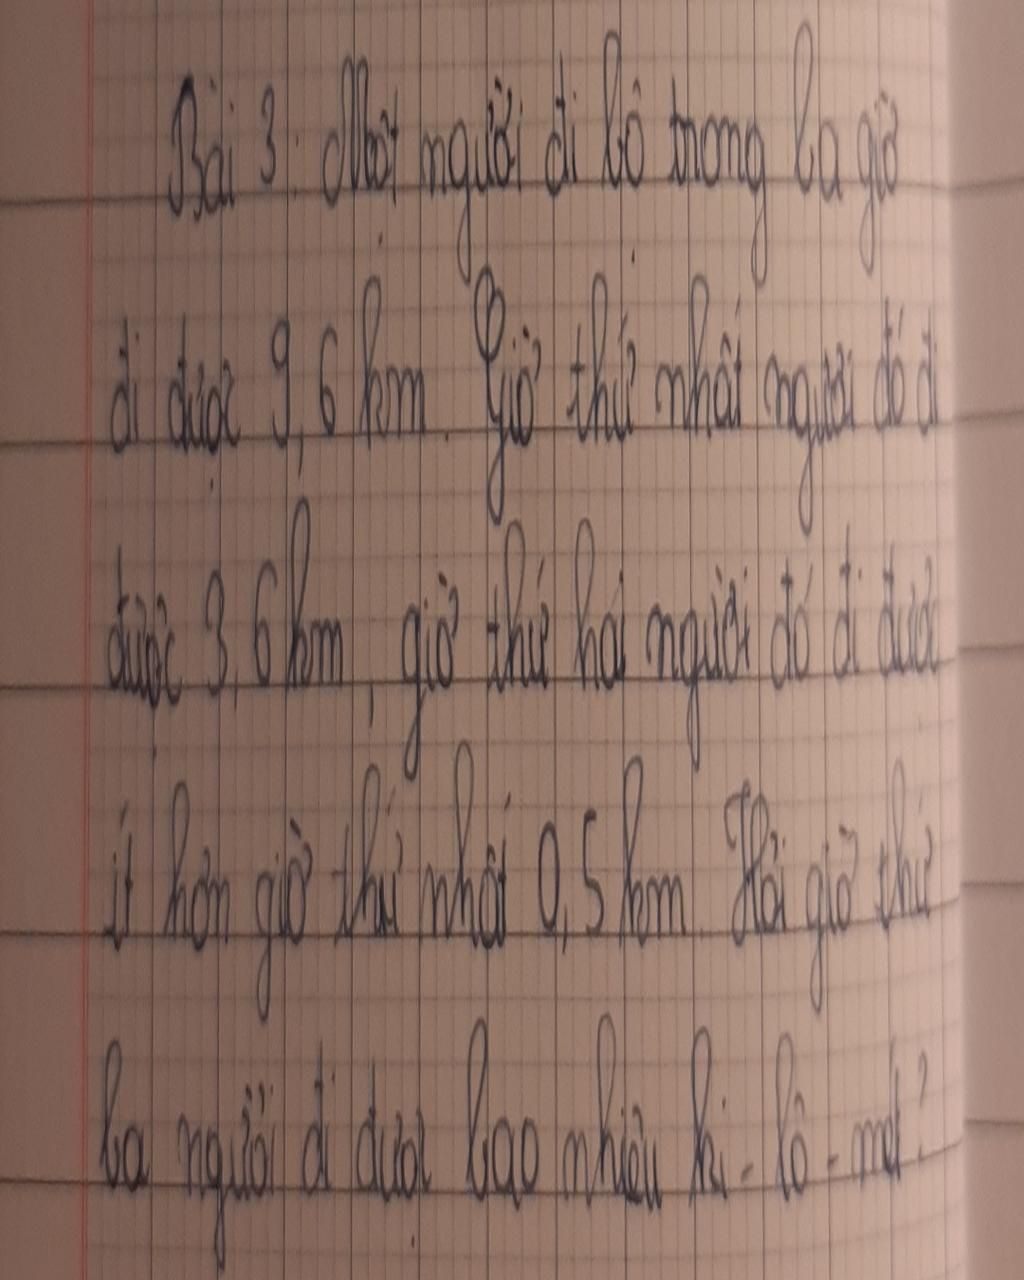 Bài 3: Một người đi bộ trong ba giờ
đi được 9,6 km. Giờ thứ nhất người đó đi
được 3,6 km, giờ thứ hai người đó đi được
ít hơn giờ thứ nhất 0,5 km. Hỏi giờ thứ
ba người đi được bao nhiêu ki-lô-mét?